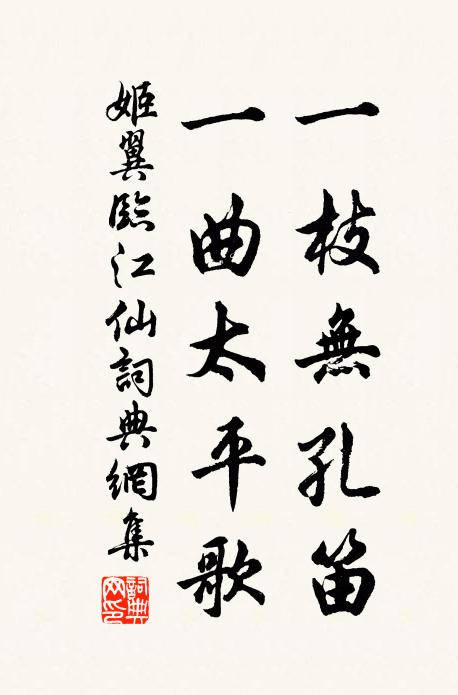 一枝無孔笛
一曲太平歌
姬翼臨江仙詞典網集
詞典網印